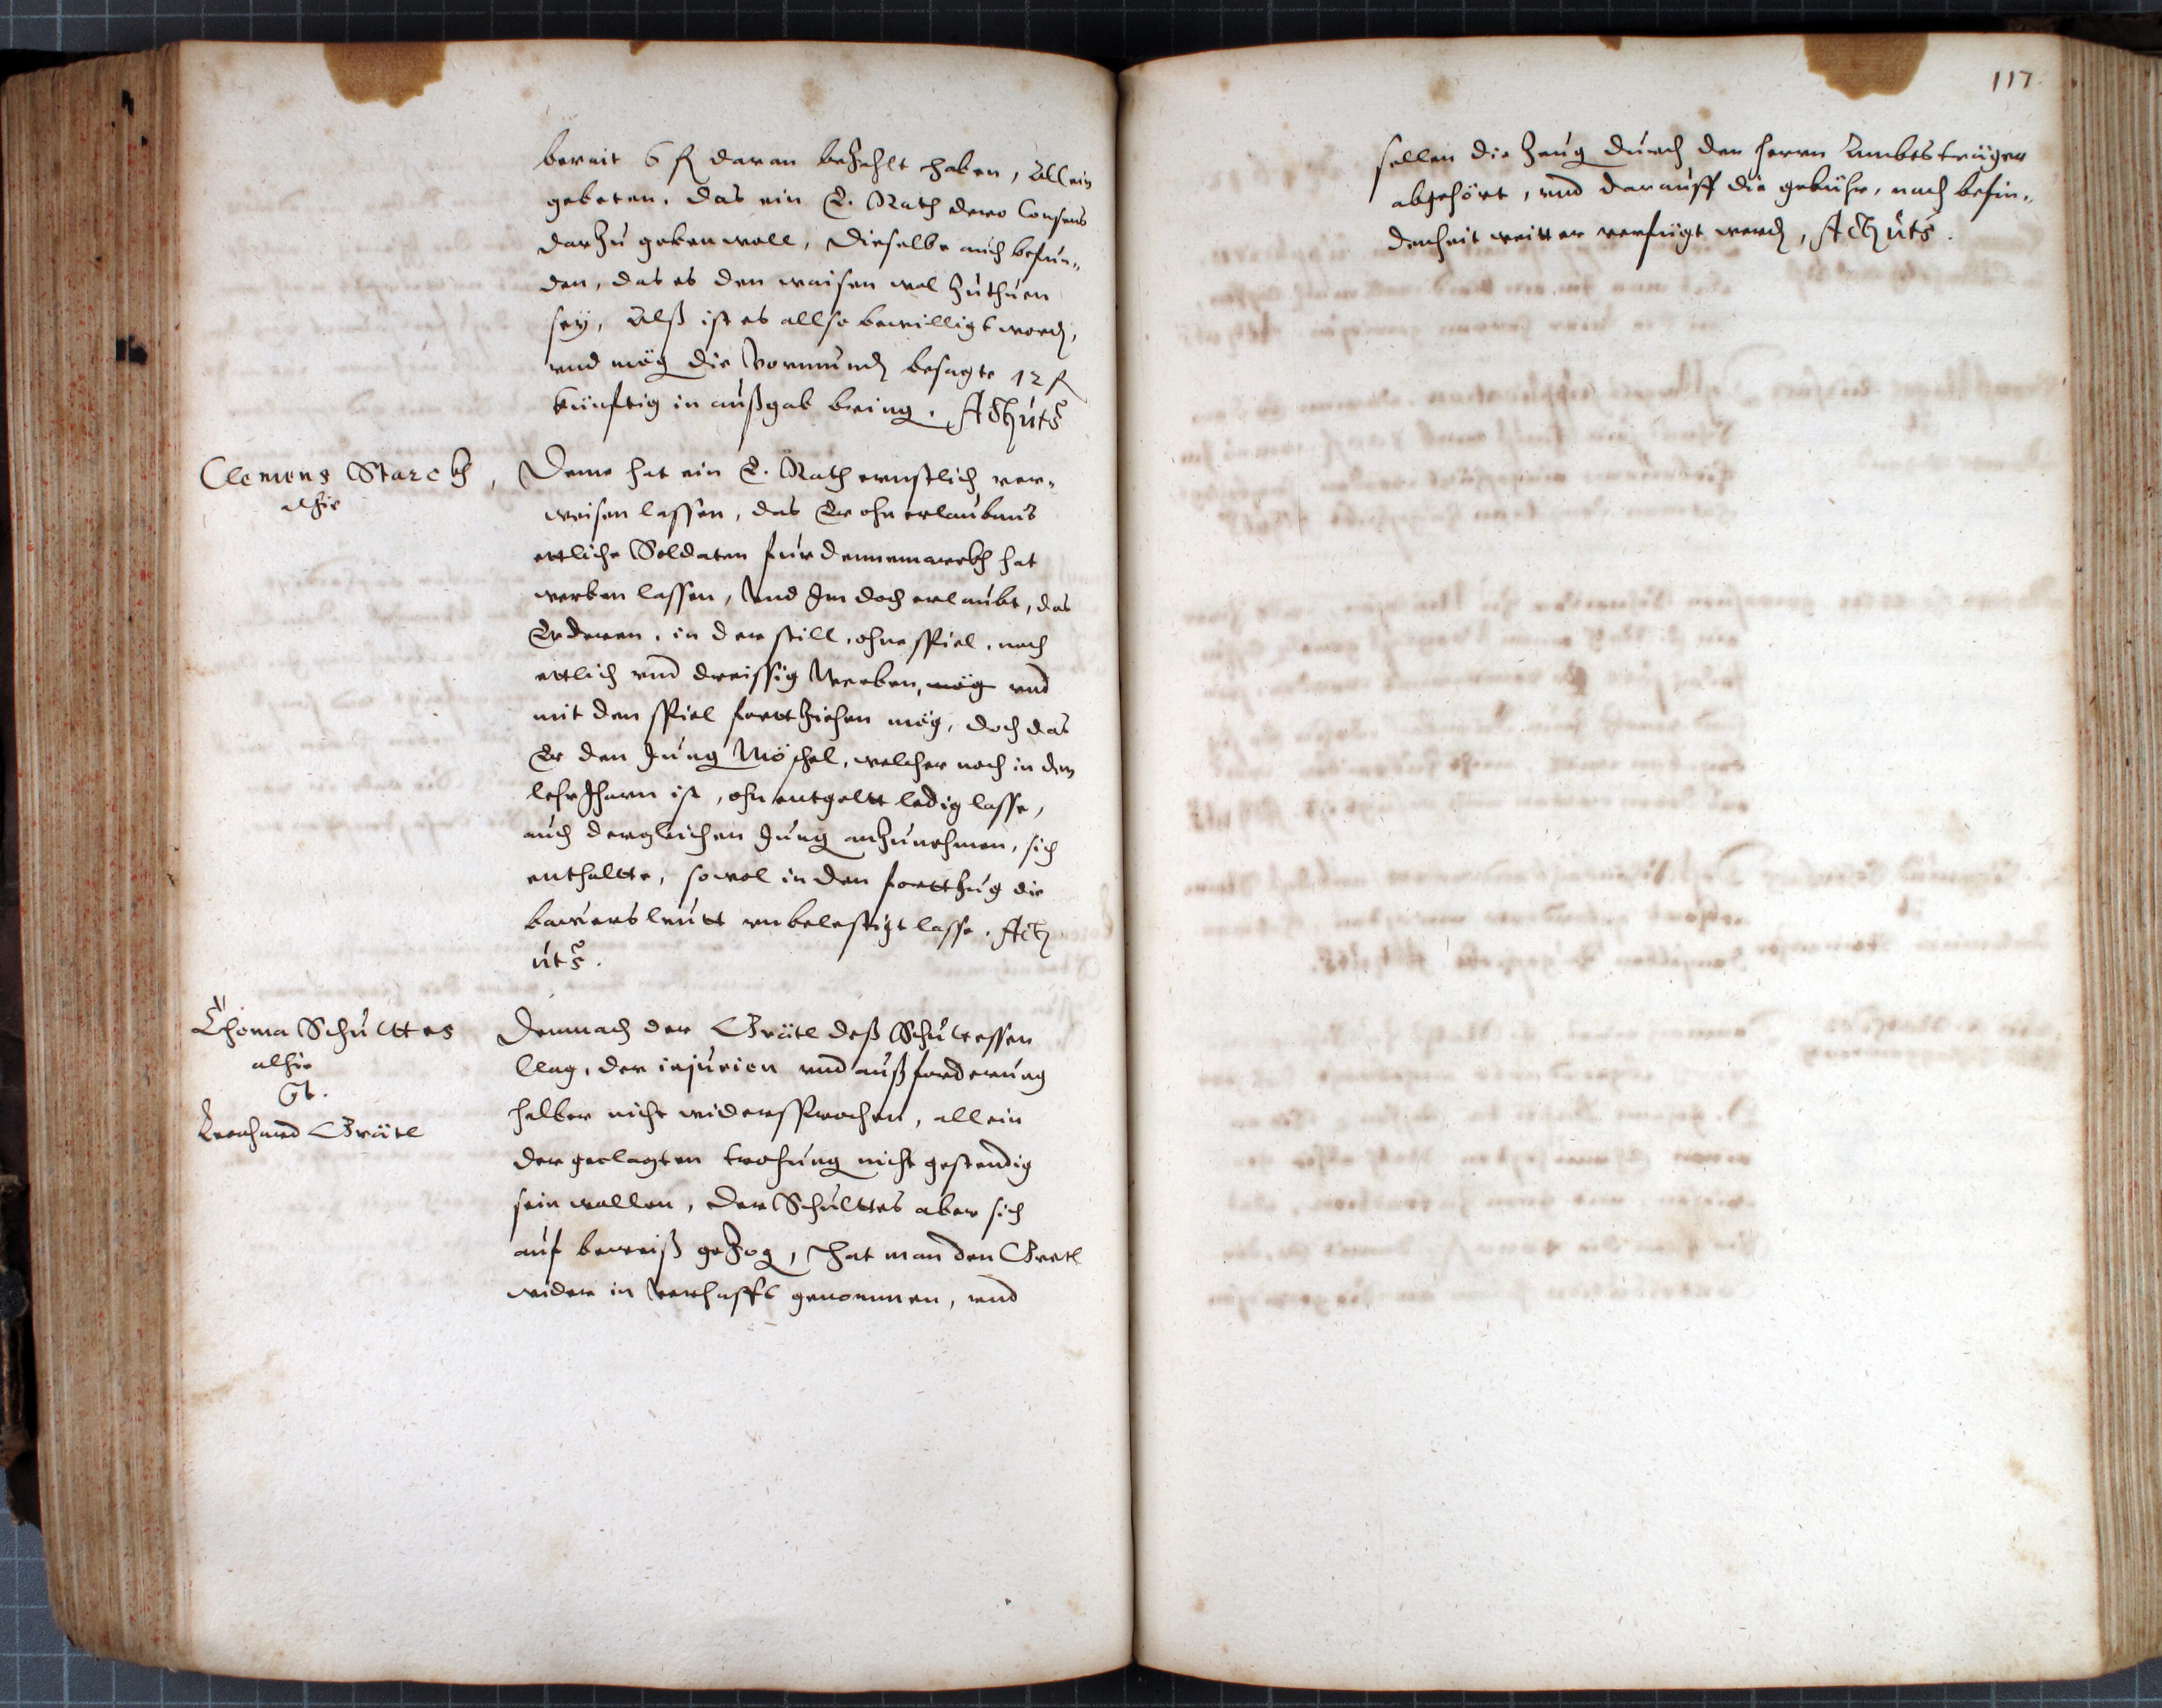 bereit 6 fl daran bezahlt haben, Allein
gebeten, das ein E. Rath dero Consens
darzu geben woll, Dieselbe auch befun„
den, das es den waisen wol zuthuen
sey, Alß ist es allso bewilligt word,
vnd mög die Vormund besagte 12 fl
künftig in außgab bring. Act. uts
Clemens Starckh,
alhie
Deme hat ein E. Rath ernstlich ver„
weisen lassen, das Er ohn erlaubnus
ettliche Soldaten für dennemarckh hat
werben lassen, Vnd Im doch erlaubt, das
Er deren, in der still, ohne spiel, noch
ettlich vnd dreissig Werben, mög vnd
mit dem spiel fortt ziehen mög, doch das
Er den Jung Möschel, welcher noch in den
lehr Jharn ist, ohn entgeltt ledig lasse,
auch dergleichen Jung anzunehmen, sich
enthaltte, sowol in den fortt zug die
bawersleutt vnbelestigt lasse. Act.
uts.
Thoma Schulttes
alhie
Ct.
Lienhard Grätl
Demnach der Grätl deß Schultessen
Clag, der injurien vnd außforderung
halber nicht widersprochen, allein
der geclagten trohung nicht gestendig
sein wollen, der Schulttes aber sich
auf beweiß gezog, That man den Gretl
wider in Verhafft genommen, vnd
117.
sollen die Zeug durch den herrn Ambtsträger
abgehört, vnd darauff die gebühr, nach befin„
denheit weitter verfügt werd, Act. uts.